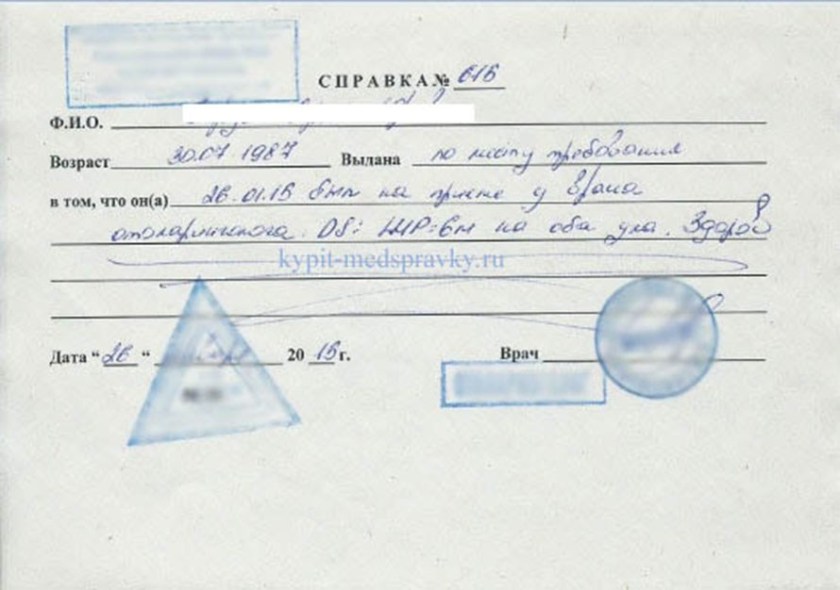 СПРАВКА № 616
Ф.И.О.
Возраст 30.07.1987 Выдана по месту требования
в том, что он(а) 26.01.15 был на приеме у врача
отоларинголога. DS: ШР=6м на оба уха. Здоров
kypit-medspravky.ru
Дата “26“ 20 15 г. Врач